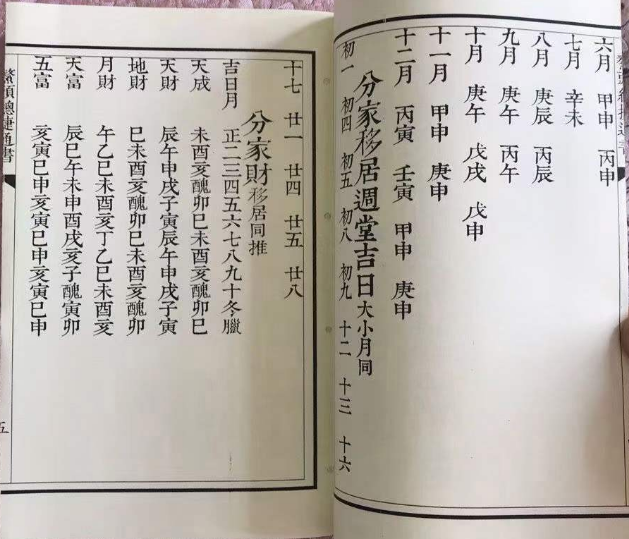 六月 甲申 丙申
七月 辛未
八月 庚辰 丙辰
九月 庚午 丙午
十月 庚午 戊戌 戊申
十一月 甲申 庚申
十二月 丙寅 壬寅 甲申 庚申
分家移居週堂吉日大小月同
初一 初四 初五 初八 初九 十二 十三 十六
十七 廿一 廿四 廿五 廿八
分家財移居同推
吉日月 正二三四五六七八九十冬臘
天成 未酉亥醜卯巳未酉亥醜卯巳
天財 辰午申戌子寅辰午申戌子寅
地財 巳未酉亥醜卯巳未酉亥醜卯
月財 午乙巳未酉亥丁乙巳未酉亥
天富 辰巳午未申酉戌亥子醜寅卯
五富 亥寅巳申亥寅巳申亥寅巳申
鰲頭總捷通書
五